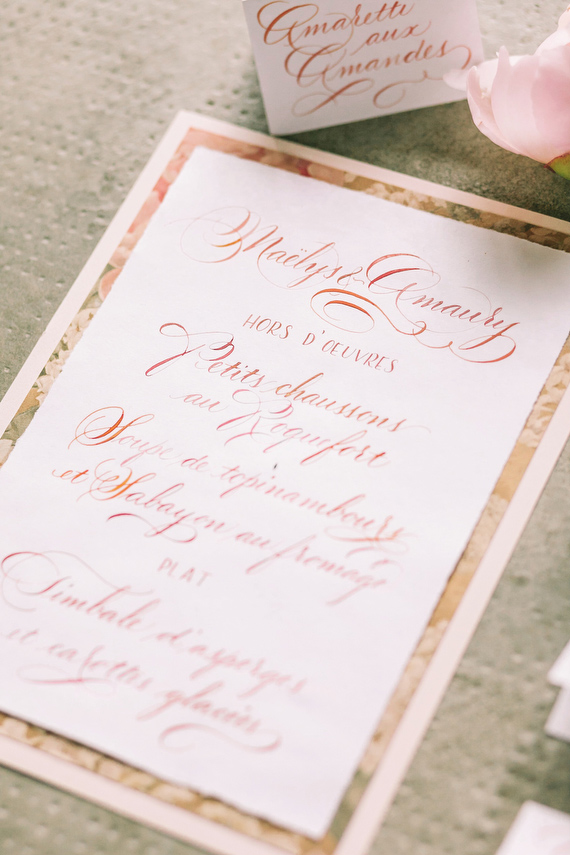 Amaretti
aux
Amandes
Maëlys & Amaury
HORS D'OEUVRES
Petits chaussons
au Roquefort
Soupe de topinambours
et Sabayon au fromage
PLAT
Timbale d'asperges
et carottes glacées